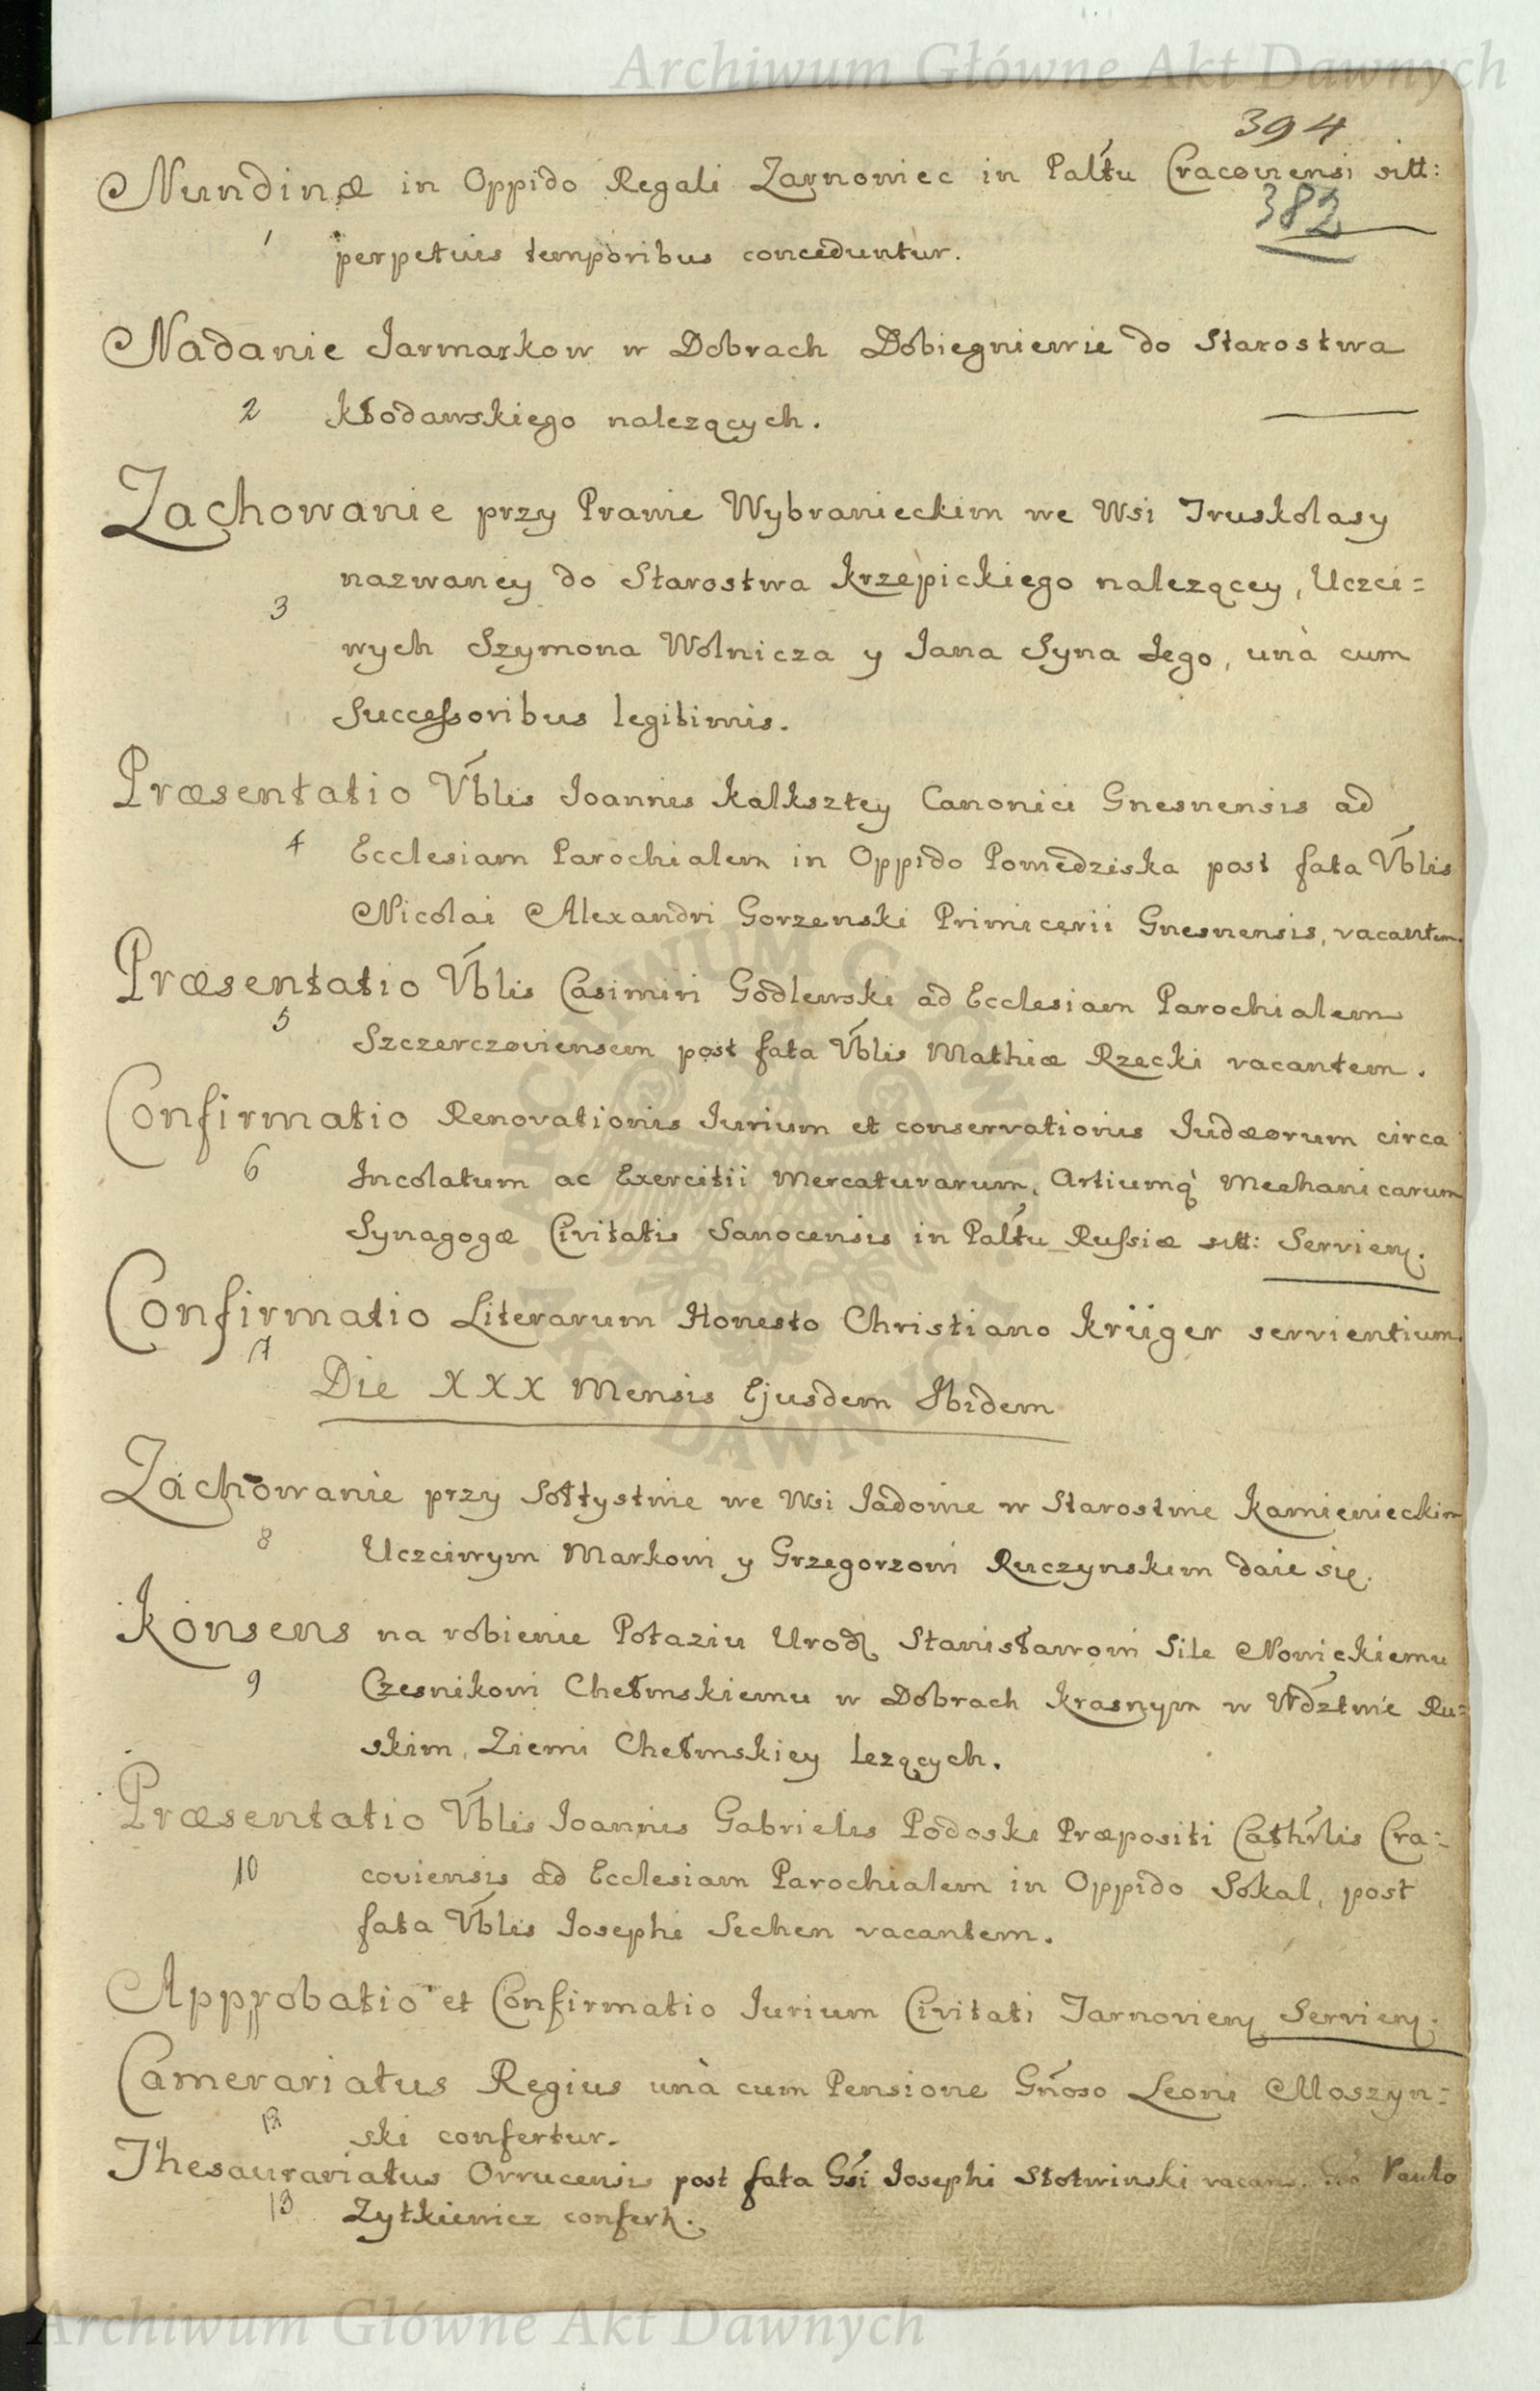 Archiwum Główne Akt Dawnych
394
Nundinæ in Oppido Regali Zarnowiec in Paltu Cracoviensi sitt:
382
1 perpetuis temporibus conceduntur.
Nadanie Jarmarkow w Dobrach Dobiegniewie do Starostwa
2 Kłodawskiego nalezących.
Zachowanie przy Prawie Wybranieckim we Wsi Truskolasy
nazwaney do Starostwa Krzepickiego nalezącey, Uczci=
3
wych Szymona Wolnicza y Jana Syna Jego, unà cum
Successoribus legitimis.
Præsentatio Vblis Joannis Kalksztey Canonici Gnesnensis ad
4 Ecclesiam Parochialem in Oppido Powiedziska post fata Vblis
Nicolai Alexandri Gorzenski Primicerii Gnesnensis, vacantem.
Præsentatio Vblis Casimiri Godlewski ad Ecclesiam Parochialem
5 Szczerczoviensem post fata Vblis Mathiæ Rzecki vacantem.
Confirmatio Renovationis Jurium et conservationis Judæorum circa
6 Incolatum ac Exercitii Mercaturarum, Artiumq̀ Mechanicarum
Synagogæ Civitatis Sanocensis in Paltu Russiæ sitt: Servien.
Confirmatio Literarum Honesto Christiano Krüger servientium.
7
Die XXX Mensis Ejusdem Ibidem
Zachowanie przy Sołtystwie we Wsi Jadowie w Starostwie Kamienieckim
8 Uczciwym Markowi y Grzegorzowi Ruczynskim daie się.
Konsens na robienie Potaziu Urodz Stanisławowi Sile Nowickiemu
9 Czesnikowi Chełmskiemu w Dobrach Krasnym w Wdztwie Ru=
skim, Ziemi Chełmskiey lezących.
Præsentatio Vblis Joannis Gabrielis Podoski Præpositi Cathrlis Cra=
10 coviensis ad Ecclesiam Parochialem in Oppido Sokal, post
fata Vblis Josephi Sechen vacantem.
Approbatio et Confirmatio Jurium Civitati Tarnovien Servien.
Camerariatus Regius unà cum Pensione Gnoso Leoni Moszyn=
12 ski confertur.
Thesaurariatus Ovrucensis post fata Gsi Josephi Słotwinski vacans. Paulo
13 Zytkiewicz confertr.
Archiwum Główne Akt Dawnych